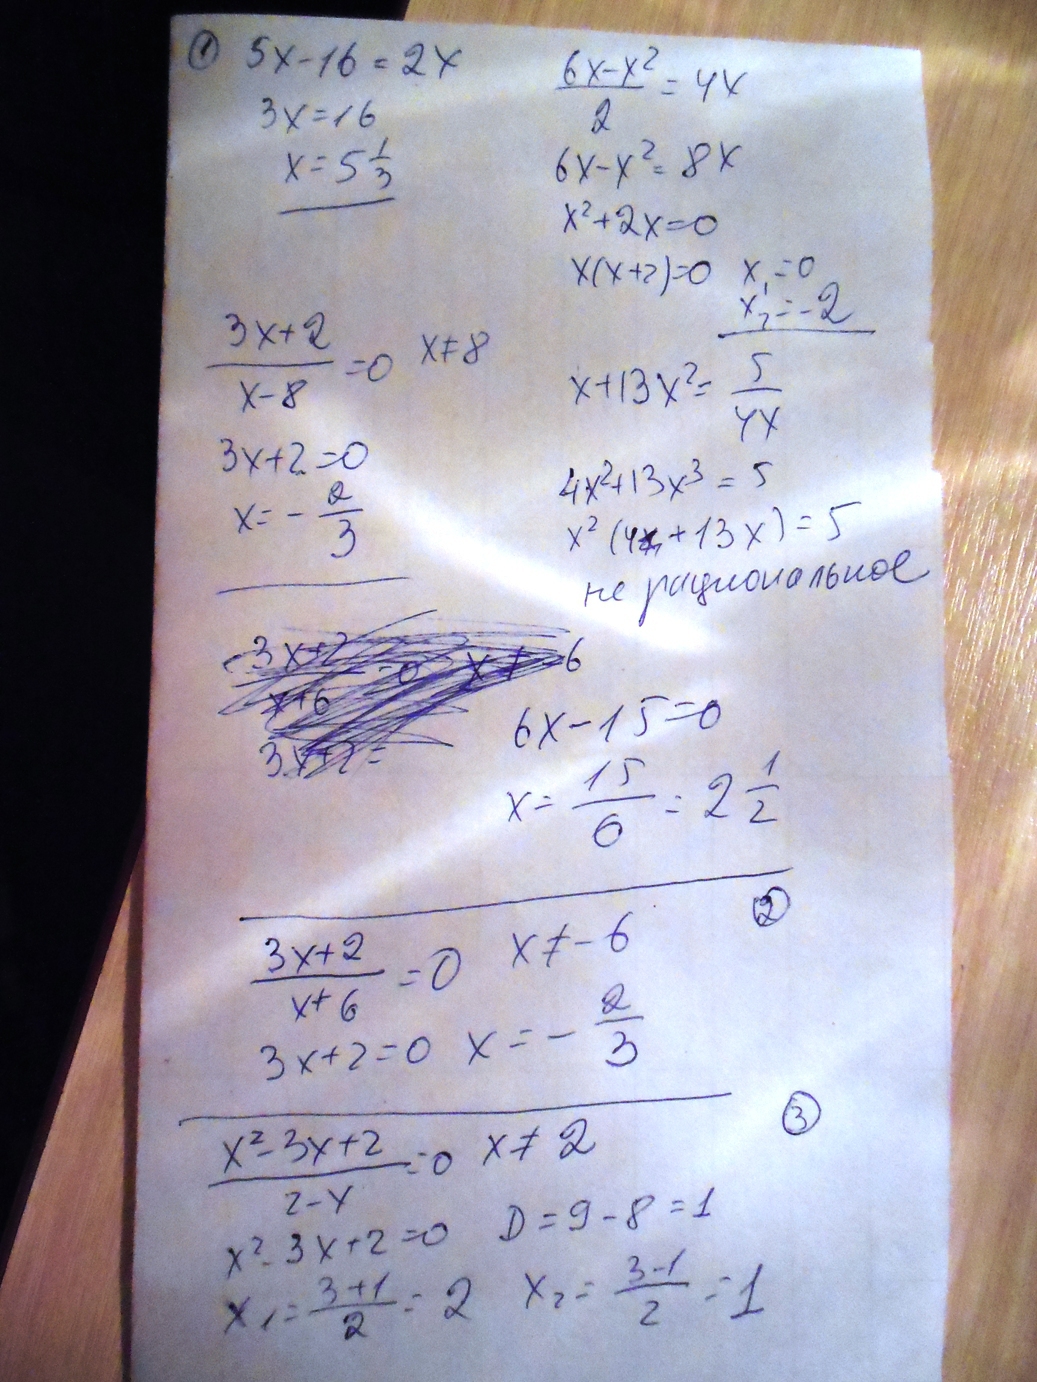 ① 5x-16=2x
3x=16
x=5 1/3
(6x-x²)/2=4x
6x-x²=8x
x²+2x=0
x(x+2)=0 x₁=0
x₂=-2
(3x+2)/(x-8)=0 x≠8
3x+2=0
x=-2/3
x+13x²=5/4x
4x²+13x³=5
x²(4x+13x)=5
не рациональное
3x+2
x+6
=0 x≠-6
3x+2=
6x-15=0
x=15/6=2 1/2
②
(3x+2)/(x+6)=0 x≠-6
3x+2=0 x=-2/3
③
(x²-3x+2)/(2-x)=0 x≠2
x²-3x+2=0 D=9-8=1
x₁=(3+1)/2=2 x₂=(3-1)/2=1